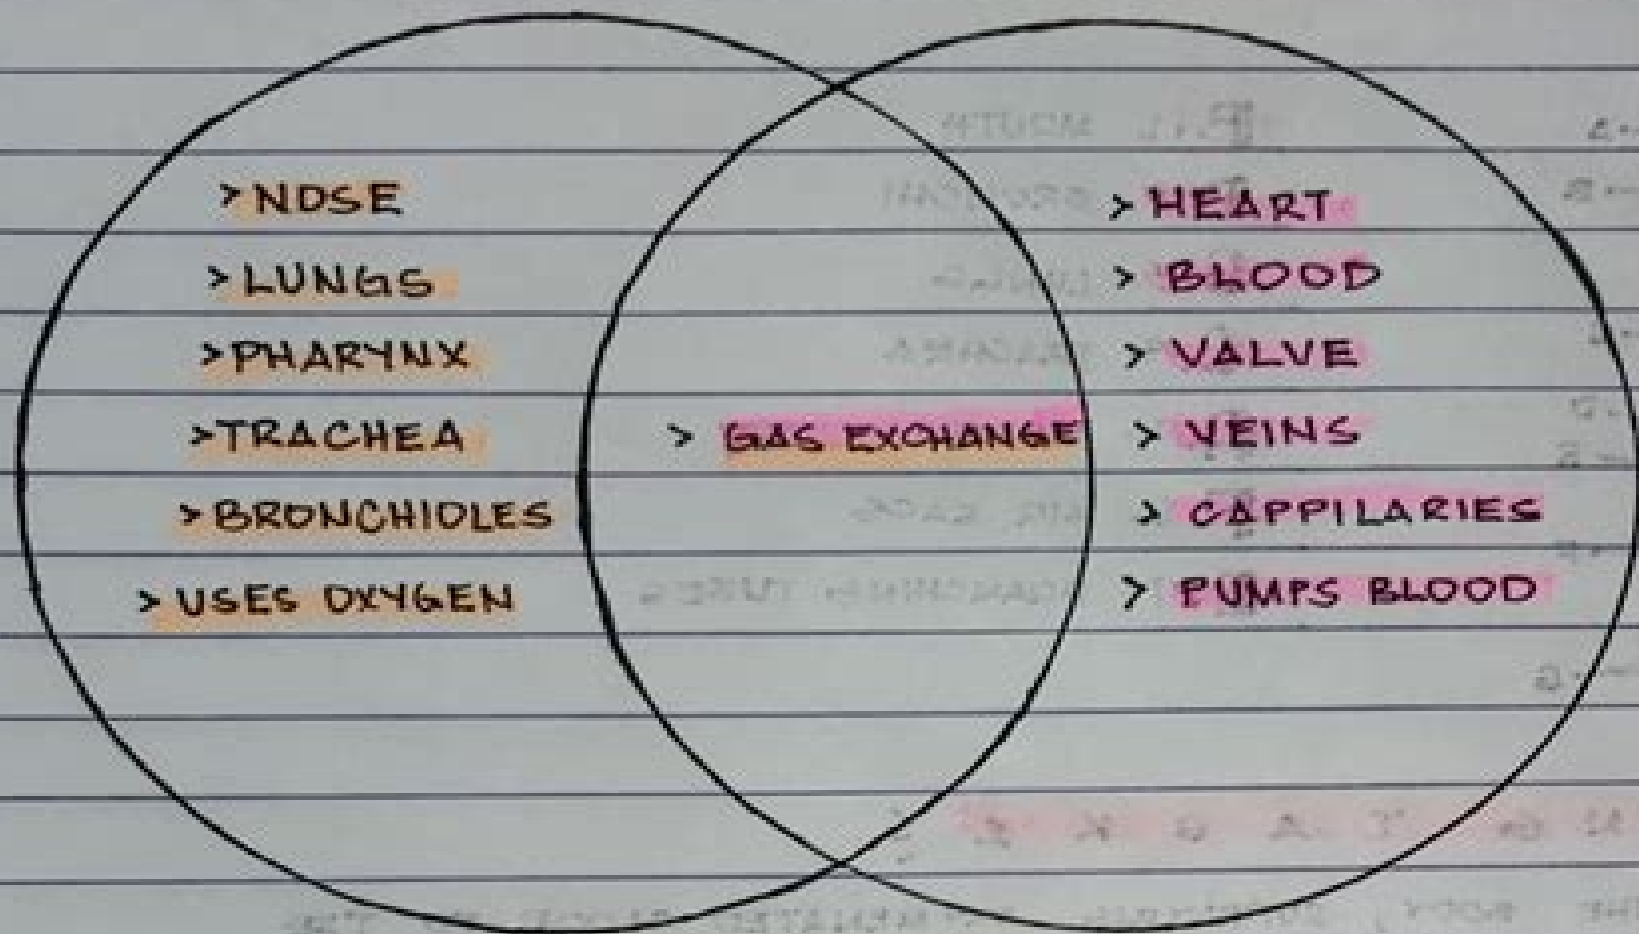 > NOSE
> LUNGS
> PHARYNX
> TRACHEA
> BRONCHIOLES
> USES OXYGEN
> GAS EXCHANGE
> HEART
> BLOOD
> VALVE
> VEINS
> CAPPILARIES
> PUMPS BLOOD